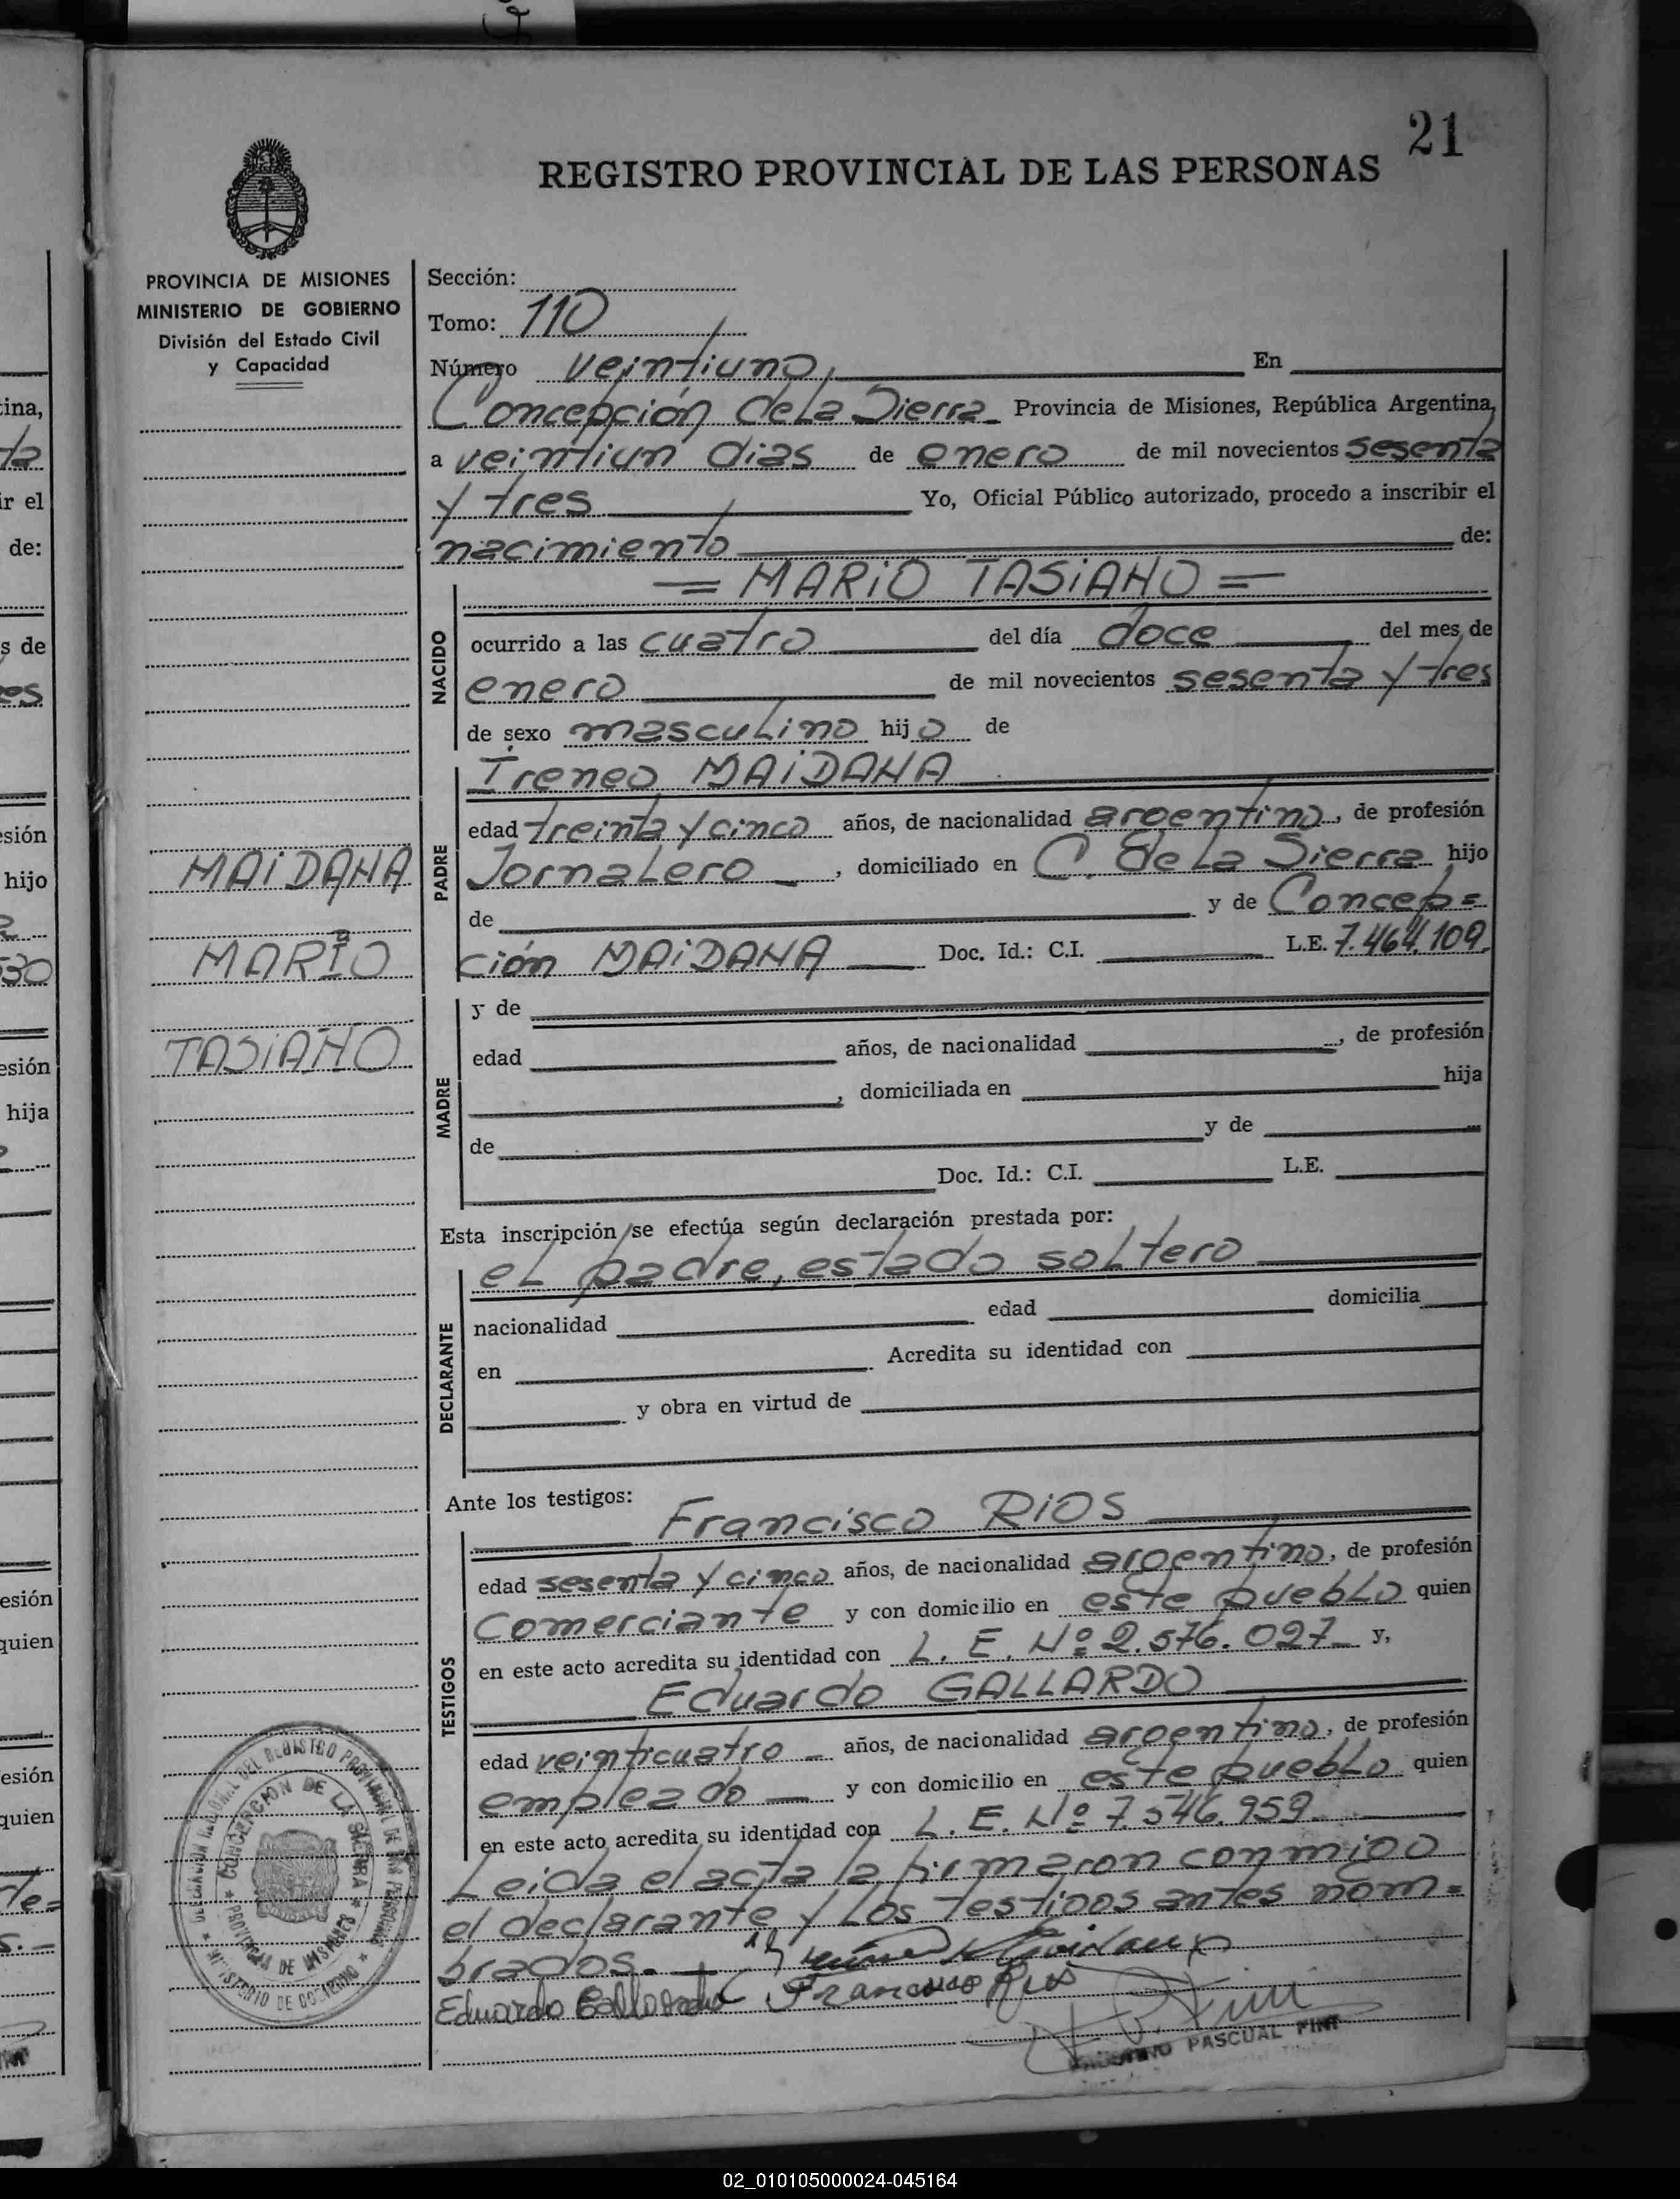 21
REGISTRO PROVINCIAL DE LAS PERSONAS
PROVINCIA DE MISIONES
MINISTERIO DE GOBIERNO
División del Estado Civil
y Capacidad
MAIDANA
MARIO
TASIANO
Sección:
Tomo: 110
Número veintiuno, En
Concepción de la Sierra Provincia de Misiones, República Argentina,
a veintiun dias de enero de mil novecientos sesenta
y tres Yo, Oficial Público autorizado, procedo a inscribir el
nacimiento de:
= MARIO TASIANO =
NACIDO
ocurrido a las cuatro del día doce del mes de
enero de mil novecientos sesenta y tres
de sexo masculino hijo de
PADRE
Ireneo MAIDANA
edad treinta y cinco años, de nacionalidad argentino, de profesión
Jornalero, domiciliado en C. de la Sierra hijo
de y de Concep=
ción MAIDANA Doc. Id.: C.I. L.E. 7.464.109.
MADRE
y de
edad años, de nacionalidad , de profesión
, domiciliada en hija
de y de
Doc. Id.: C.I. L.E.
Esta inscripción se efectúa según declaración prestada por:
el padre, estado soltero
DECLARANTE
nacionalidad edad domicilia
en Acredita su identidad con
y obra en virtud de
Ante los testigos:
TESTIGOS
Francisco RIOS
edad sesenta y cinco años, de nacionalidad argentino, de profesión
Comerciante y con domicilio en este pueblo quien
en este acto acredita su identidad con L. E. Nº 2.576.027 y,
Eduardo GALLARDO
edad veinticuatro años, de nacionalidad argentino, de profesión
empleado y con domicilio en este pueblo quien
en este acto acredita su identidad con L. E. Nº 7.546.959.
Leida el acta la firmaron conmigo
el declarante y los testigos antes nom=
brados.-
Eduardo Gallardo Francisco Rios
PASCUAL PINI
CONCEPCION DE LA SIERRA
PROVINCIA DE MISIONES
DEL REGISTRO PROVINCIAL DE LAS PERSONAS
MINISTERIO DE GOBIERNO
02_010105000024-045164